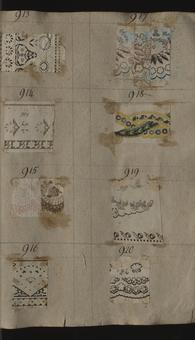 913
917
914
918
915
919
916
920